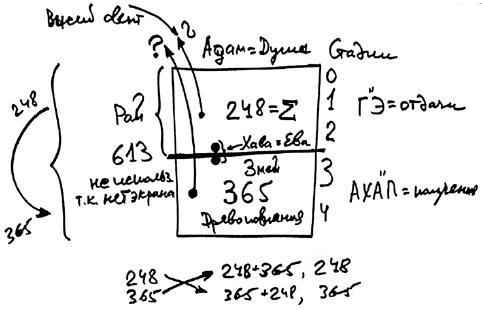 Высший свет
?
?
Адам=Душа
Стадии
0
1
2
3
4
248
365
Рай
613
не использ
т.к. нет экрана
248=Σ
Хава=Ева
Змей
365
Древо познания
Г"Э=отдачи
АХА"П=получения
248 248+365, 248
365 365+248, 365